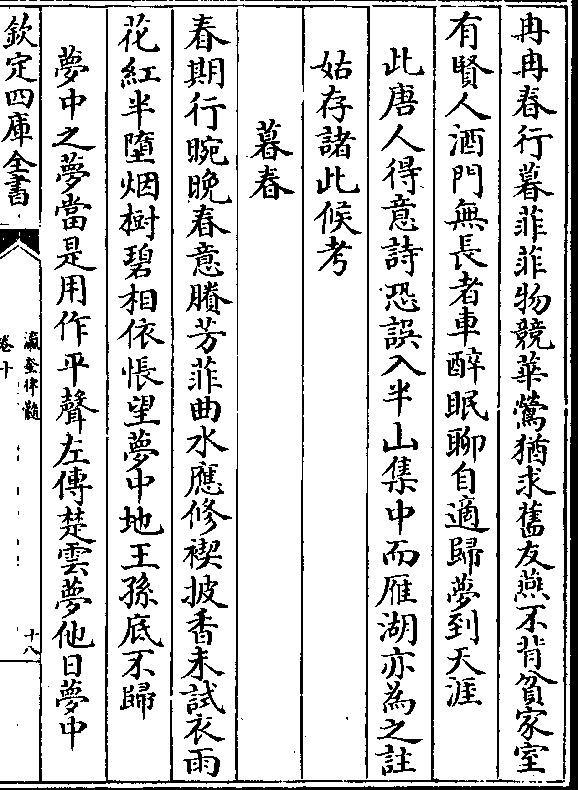 冉冉春行暮菲菲物競華鶯猶求舊友燕不背貧家室
有賢人酒門無長者車醉眠聊自適歸夢到天涯
此唐人得意詩恐誤入半山集中而雁湖亦為之註
姑存諸此候考
暮春
春期行晼晚春意賸芳菲曲水應修禊披香未試衣雨
花紅半墮烟樹碧相依悵望夢中地王孫底不歸
夢中之夢當是用作平聲左傳楚雲夢他日夢中
欽定四庫全書
瀛奎律髓
卷十
十八